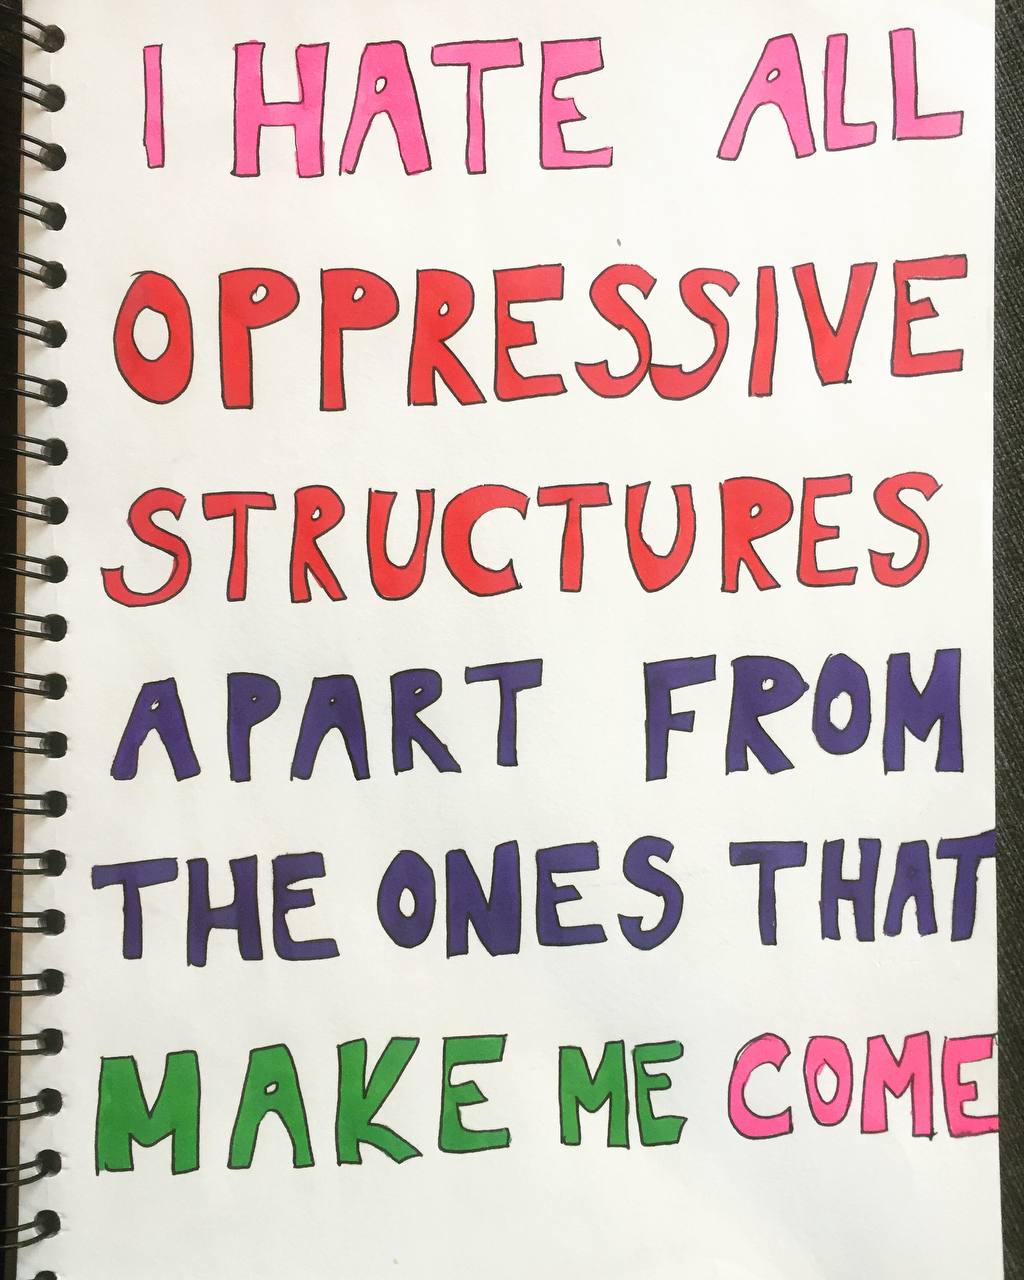 I HATE ALL
OPPRESSIVE
STRUCTURES
APART FROM
THE ONES THAT
MAKE ME COME